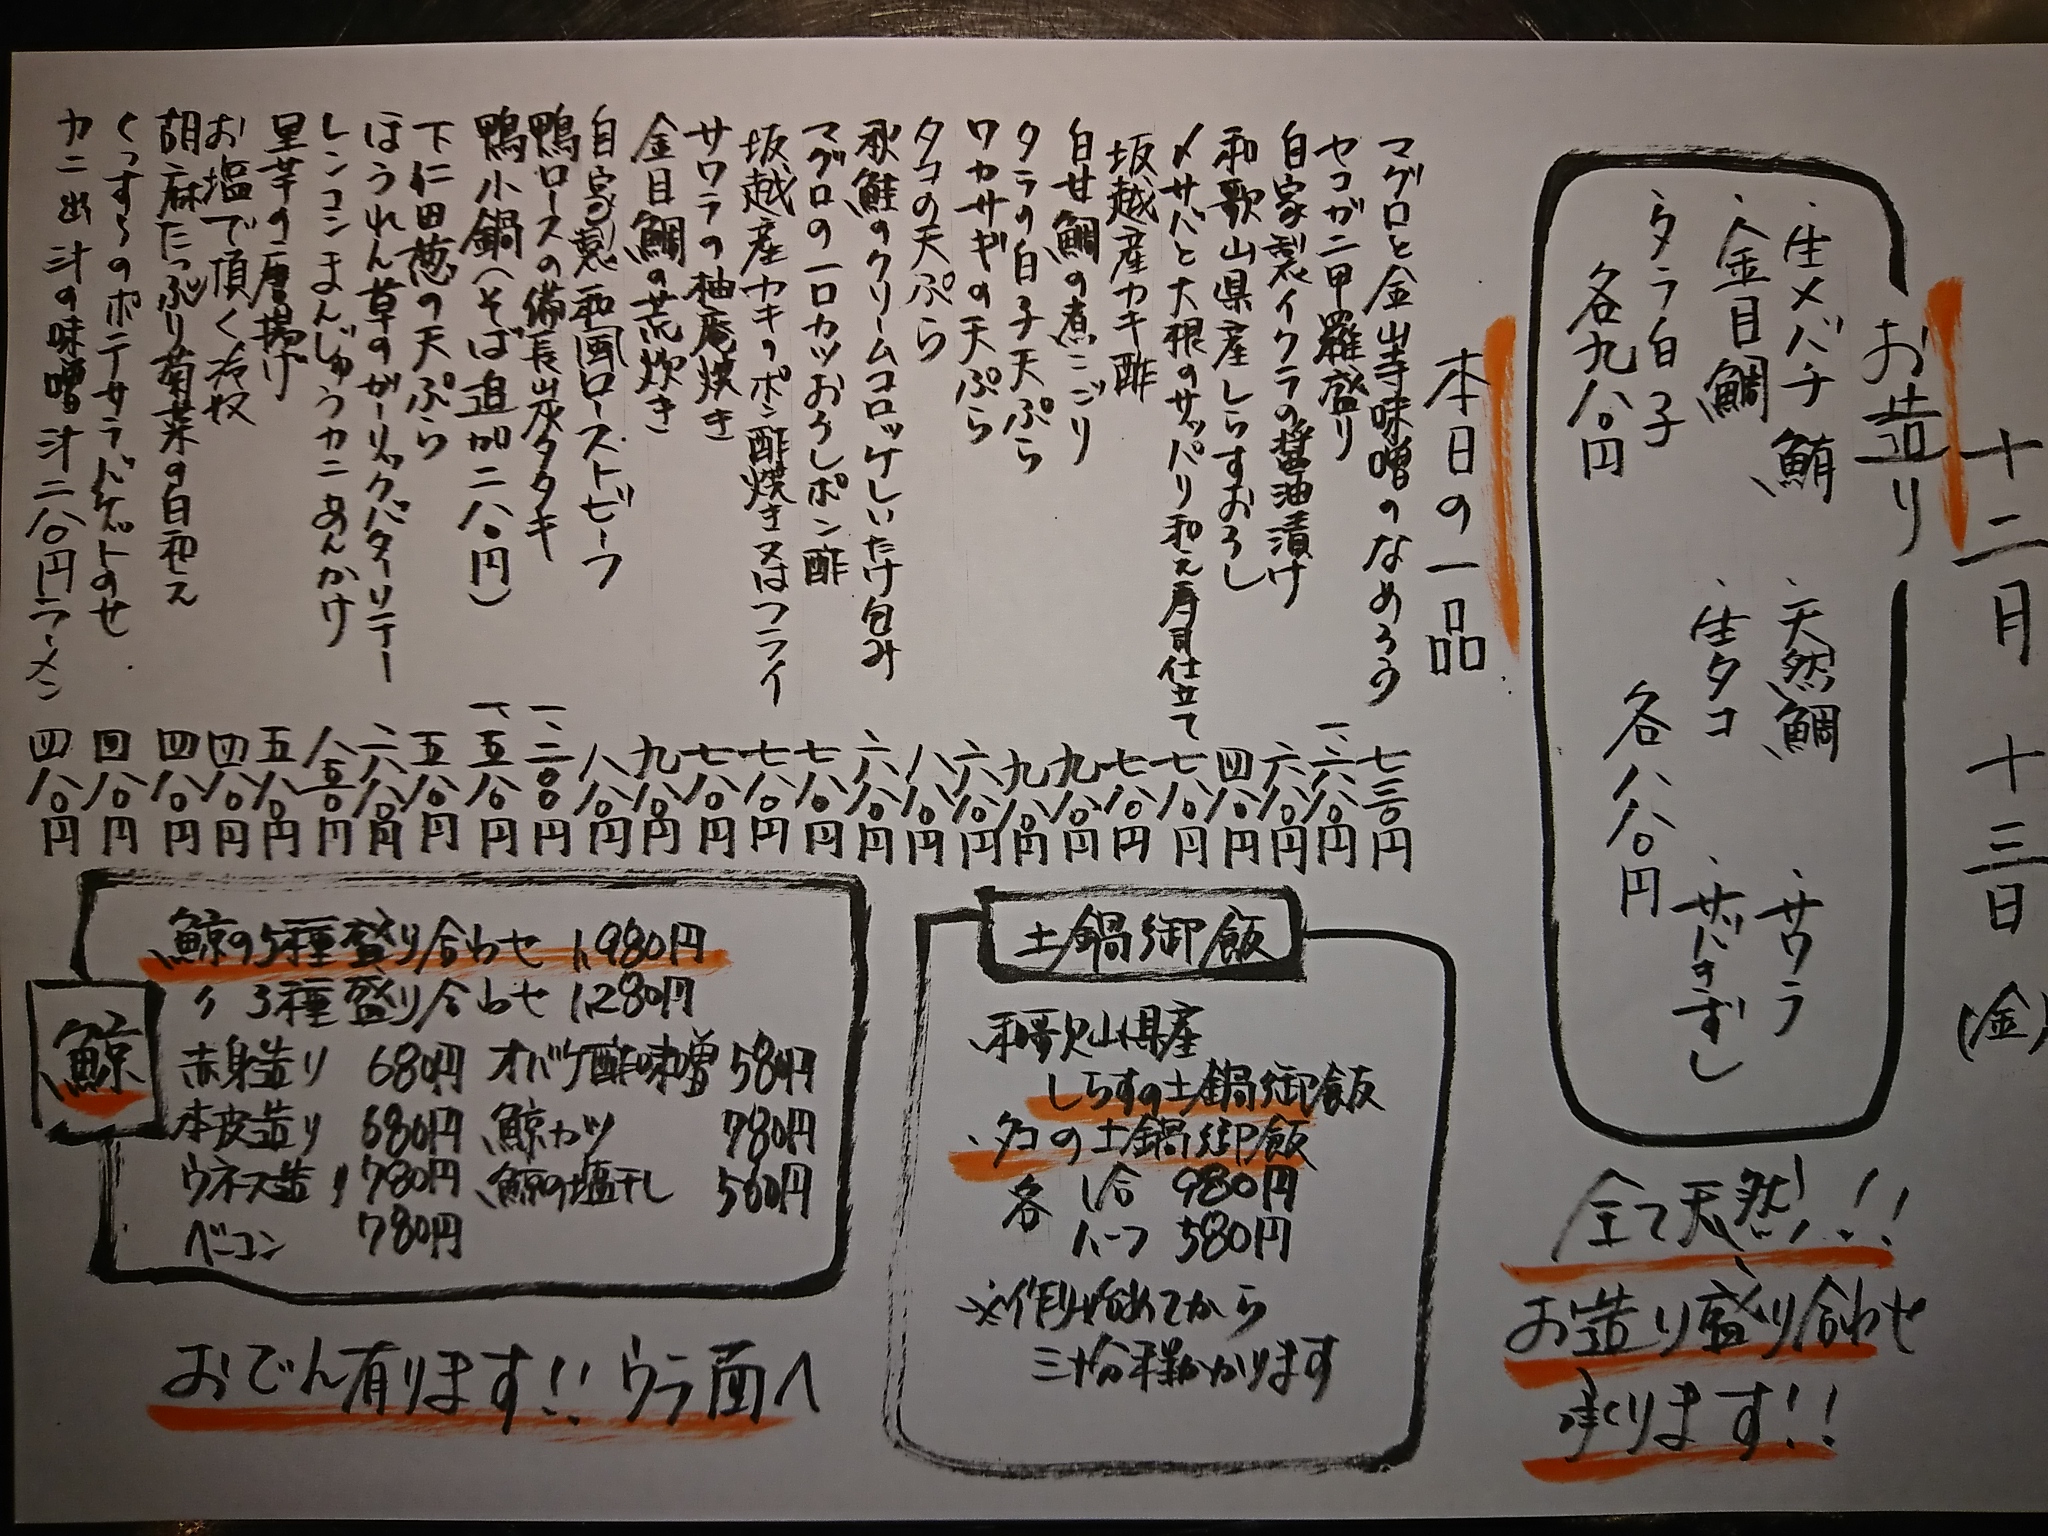 十二月 十三日 (金)
お造り
・生メバチ鮪
・金目鯛
・タラ白子
各九八〇円
・天然鯛
・生タコ
各八八〇円
・サワラ
・サバきずし
全て天然!!
お造り盛り合わせ
承ります!!
本日の一品
マグロと金山寺味噌のなめろう 七三〇円
セコガニ甲羅盛り 一、二八〇円
自家製イクラの醤油漬け 六八〇円
和歌山県産しらすおろし 四八〇円
〆サバと大根のサッパリ和え寿司仕立て 七八〇円
坂越産カキ酢 七八〇円
白甘鯛の煮こごり 九八〇円
タラの白子天ぷら 九八〇円
ワカサギの天ぷら 六八〇円
タコの天ぷら 八八〇円
秋鮭のクリームコロッケしいたけ包み 六八〇円
マグロの一口カツおろしポン酢 七八〇円
坂越産カキのポン酢焼き又はフライ 七八〇円
サワラの柚庵焼き 七八〇円
金目鯛の荒炊き 九八〇円
自家製和風ローストビーフ 八八〇円
鴨ロースの備長炭タタキ 一、二〇〇円
鴨小鍋(そば追加二八〇円) 一、五八〇円
下仁田葱の天ぷら 五八〇円
ほうれん草のガーリックバターソテー 六八〇円
レンコンまんじゅうカニあんかけ 八五〇円
里芋の唐揚げ 五八〇円
お塩で頂く冷奴 四八〇円
胡麻たっぷり菊菜の白和え 四八〇円
くっすらのポテサラバゲットのせ 四八〇円
カニ出汁の味噌汁二八〇円ラーメン 四八〇円
土鍋御飯
・和歌山県産
しらすの土鍋御飯
・タコの土鍋御飯
各 1合 980円
ハーフ 580円
※作り始めてから
三十分程かかります
鯨
鯨の5種盛り合わせ 1,980円
〃 3種盛り合わせ 1,280円
赤身造り 680円 オバケ酢味噌 580円
本皮造り 680円 鯨カツ 780円
ウネス造り 780円 鯨の塩干し 500円
ベーコン 780円
おでん有ります!! ウラ面へ